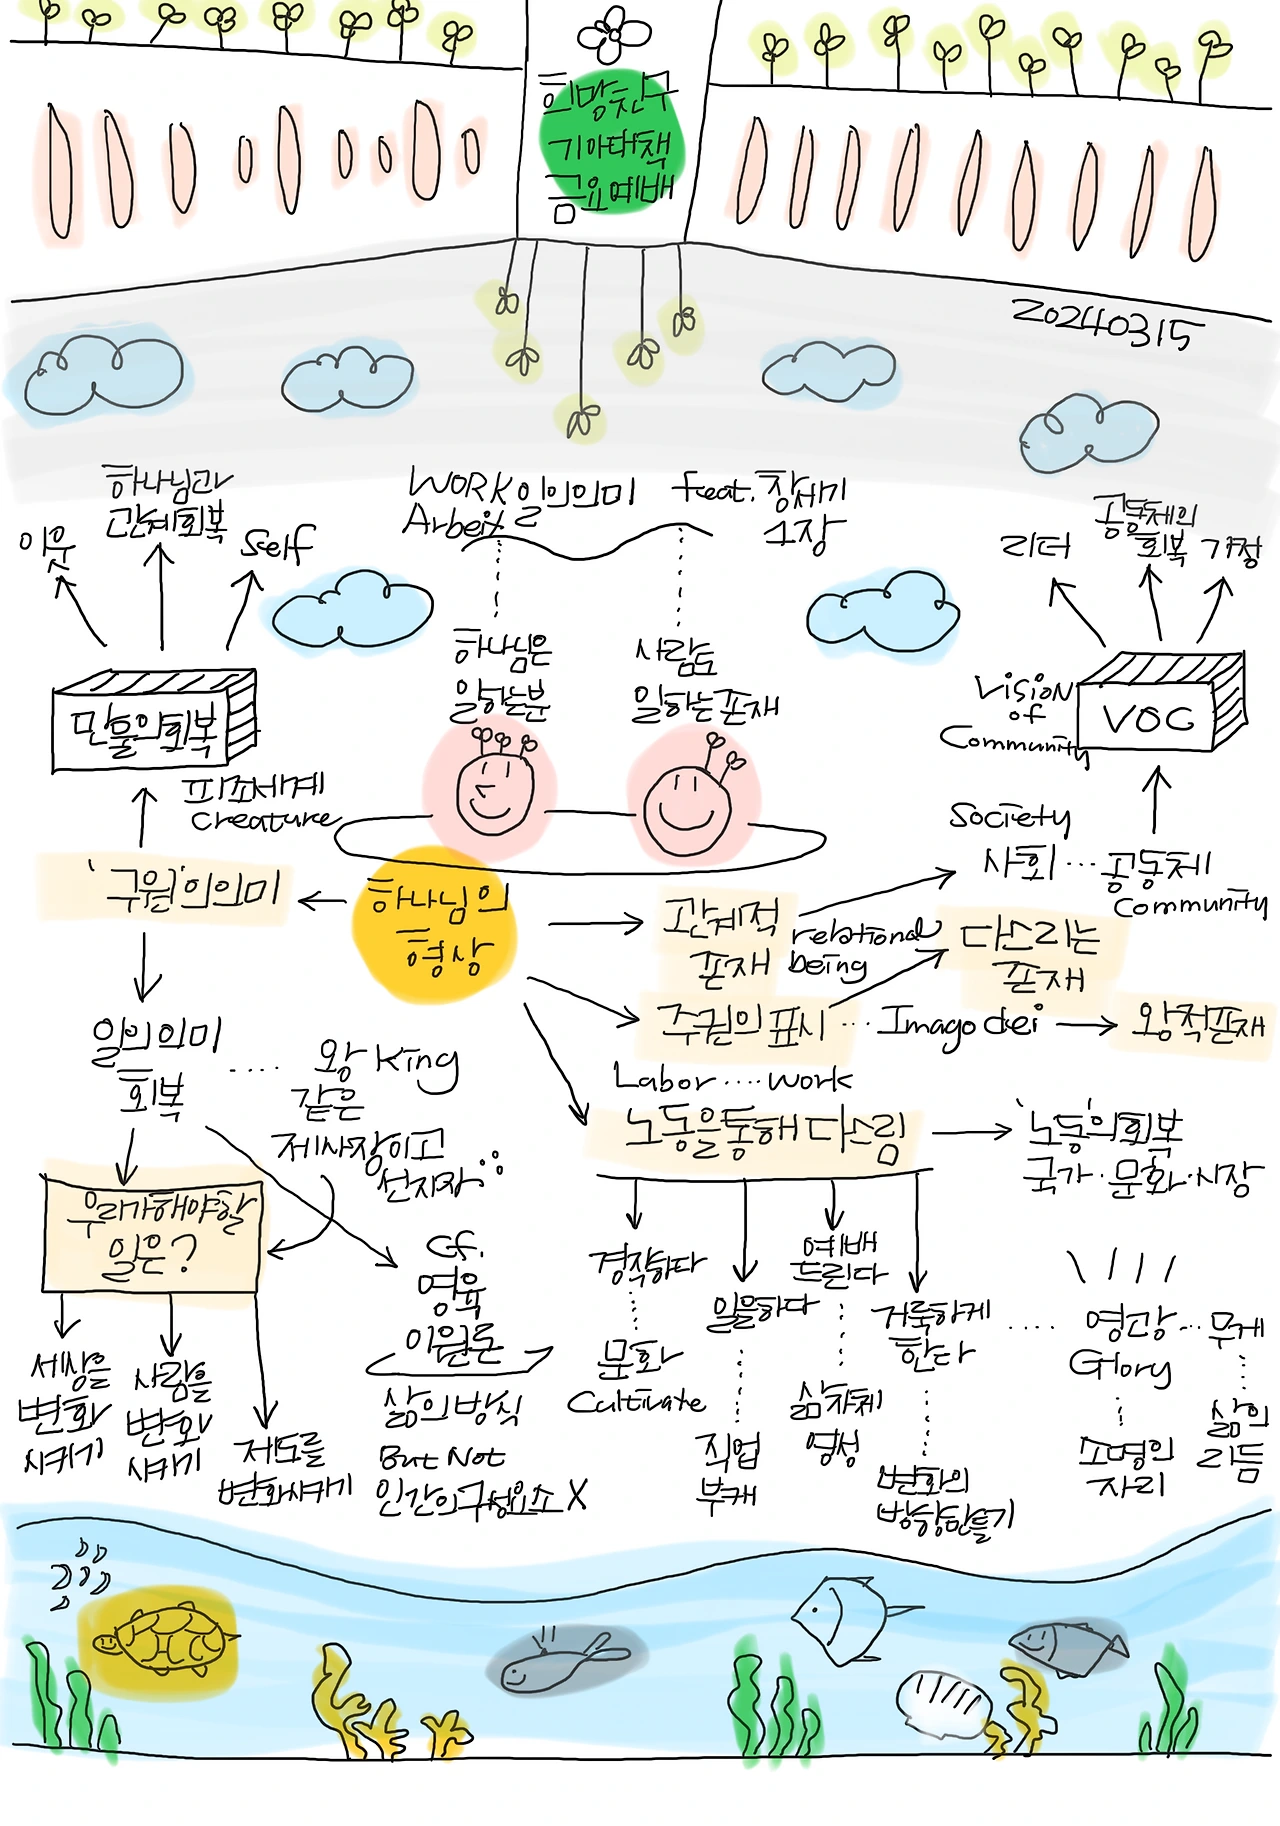 희망친구
기아대책
금요예배
20240315
WORK 일의 의미
Arbeit
feat. 창세기
1장
하나님은
일하는 분
사람도
일하는 존재
이웃
하나님과
관계회복
Self
만물의 회복
피조세계
Creature
'구원'의 의미
리더
공동체의
회복
가정
Vision
of
Community
VOC
Society
사회 ··· 공동체
Community
하나님의
형상
관계적
존재
relational
being
다스리는
존재
주권의 표시 ··· Imago dei
왕적존재
Labor ···· work
노동을 통해 다스림
'노동'의 회복
국가·문화·시장
일의 의미
회복
···· 왕 King
같은
제사장이고
선지자
우리가 해야할
일은?
세상을
변화
시키기
사람을
변화
시키기
제도를
변화시키기
Cf.
영육
이원론
삶의 방식
But Not
인간의 구성요소 X
경작하다
문화
Cultivate
일을하다
직업
부캐
예배
드린다
삶 자체
영성
거룩하게
한다
변화의
방향만들기
영광 ··· 무게
Glory
소명의
자리
삶의
리듬